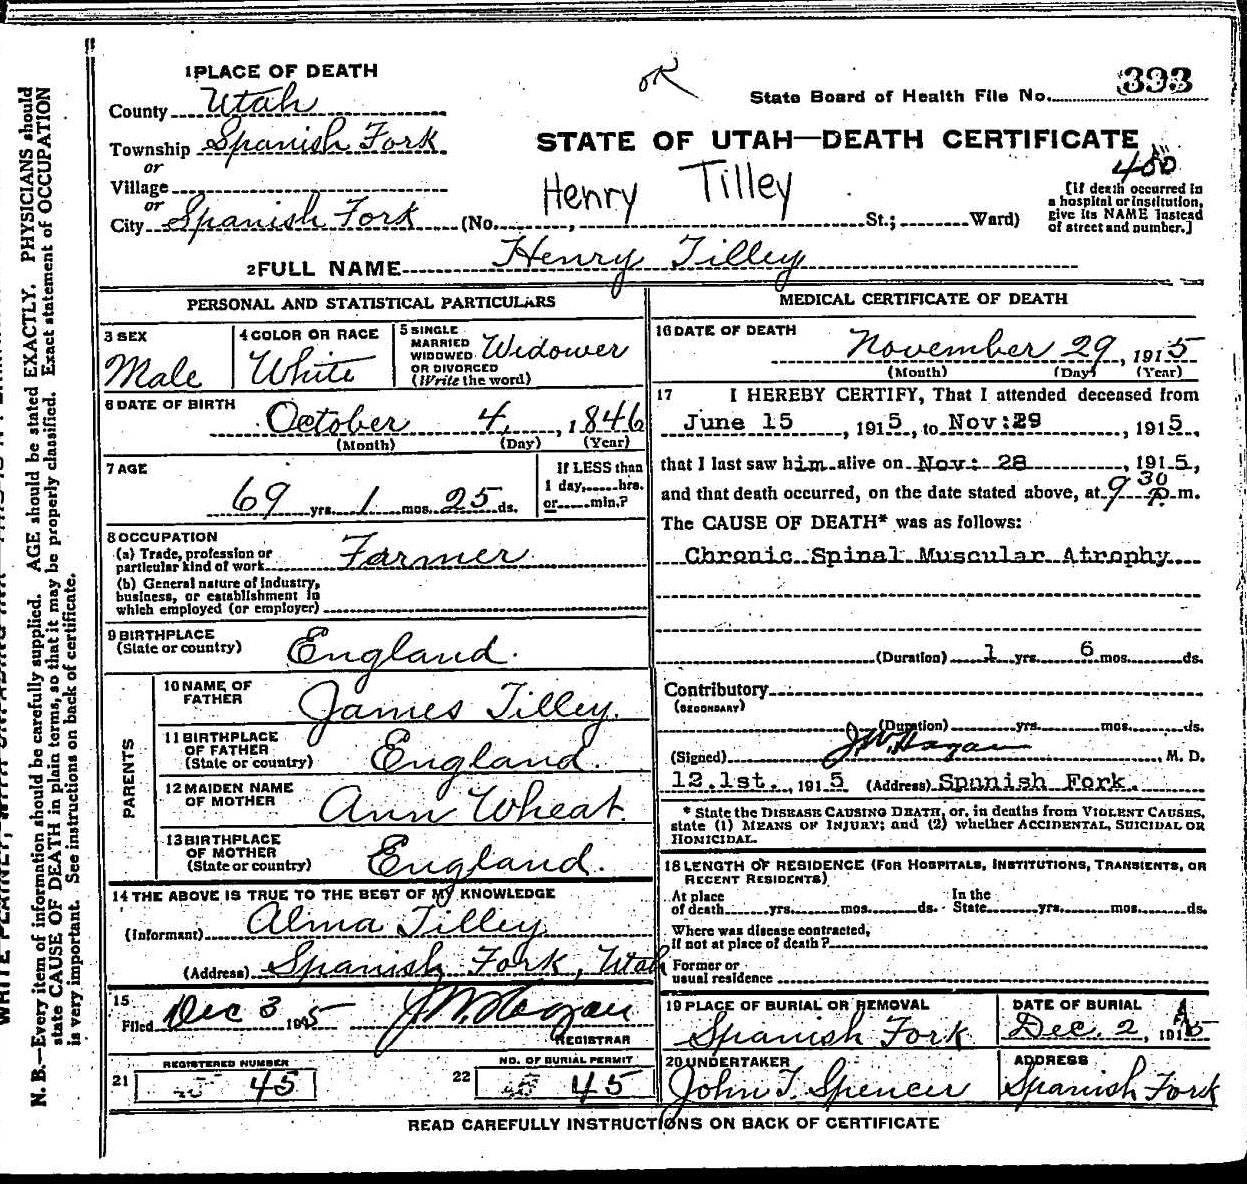 1 PLACE OF DEATH
OK
State Board of Health File No. 393
County Utah
Township Spanish Fork
or
Village
or
City Spanish Fork (No. , St.; Ward)
STATE OF UTAH—DEATH CERTIFICATE
400
Henry Tilley
[If death occurred in
a hospital or institution,
give its NAME instead
of street and number.]
2 FULL NAME Henry Tilley
PERSONAL AND STATISTICAL PARTICULARS
3 SEX
Male
4 COLOR OR RACE
White
5 SINGLE
MARRIED
WIDOWED
OR DIVORCED
(Write the word)
Widower
6 DATE OF BIRTH
October 4, , 1846
(Month) (Day) (Year)
7 AGE
69 yrs. 1 mos. 25 ds.
If LESS than
1 day, hrs.
or min.?
8 OCCUPATION
(a) Trade, profession or
particular kind of work Farmer
(b) General nature of industry,
business, or establishment in
which employed (or employer)
9 BIRTHPLACE
(State or country) England.
PARENTS
10 NAME OF
FATHER James Tilley.
11 BIRTHPLACE
OF FATHER
(State or country) England.
12 MAIDEN NAME
OF MOTHER Ann Wheat.
13 BIRTHPLACE
OF MOTHER
(State or country) England.
14 THE ABOVE IS TRUE TO THE BEST OF MY KNOWLEDGE
(Informant) Alma Tilley
(Address) Spanish Fork, Utah
15
Filed Dec 3 1915 J.W. Hagan
REGISTRAR
REGISTERED NUMBER
21 45
NO. OF BURIAL PERMIT
22 45
MEDICAL CERTIFICATE OF DEATH
16 DATE OF DEATH
November 29, 1915
(Month) (Day) (Year)
17 I HEREBY CERTIFY, That I attended deceased from
June 15 , 1915, to Nov:29 , 1915,
that I last saw him alive on Nov: 28 , 1915,
and that death occurred, on the date stated above, at 9 30 P. m.
The CAUSE OF DEATH* was as follows:
Chronic Spinal Muscular Atrophy
(Duration) 1 yrs. 6 mos. ds.
Contributory
(SECONDARY)
(Duration) yrs. mos. ds.
(Signed) J.W. Hagan , M. D.
12.1st. , 1915 (Address) Spanish Fork.
* State the DISEASE CAUSING DEATH, or, in deaths from VIOLENT CAUSES,
state (1) MEANS OF INJURY; and (2) whether ACCIDENTAL, SUICIDAL OR
HOMICIDAL.
18 LENGTH OF RESIDENCE (FOR HOSPITALS, INSTITUTIONS, TRANSIENTS, OR
RECENT RESIDENTS)
At place In the
of death yrs. mos. ds. State yrs. mos. ds.
Where was disease contracted,
if not at place of death?
Former or
usual residence
19 PLACE OF BURIAL OR REMOVAL
Spanish Fork
DATE OF BURIAL
Dec. 2, 1915
20 UNDERTAKER
John T. Spencer
ADDRESS
Spanish Fork
READ CAREFULLY INSTRUCTIONS ON BACK OF CERTIFICATE
N. B.—Every item of information should be carefully supplied. AGE should be stated EXACTLY. PHYSICIANS should
state CAUSE OF DEATH in plain terms, so that it may be properly classified. Exact statement of OCCUPATION
is very important. See instructions on back of certificate.